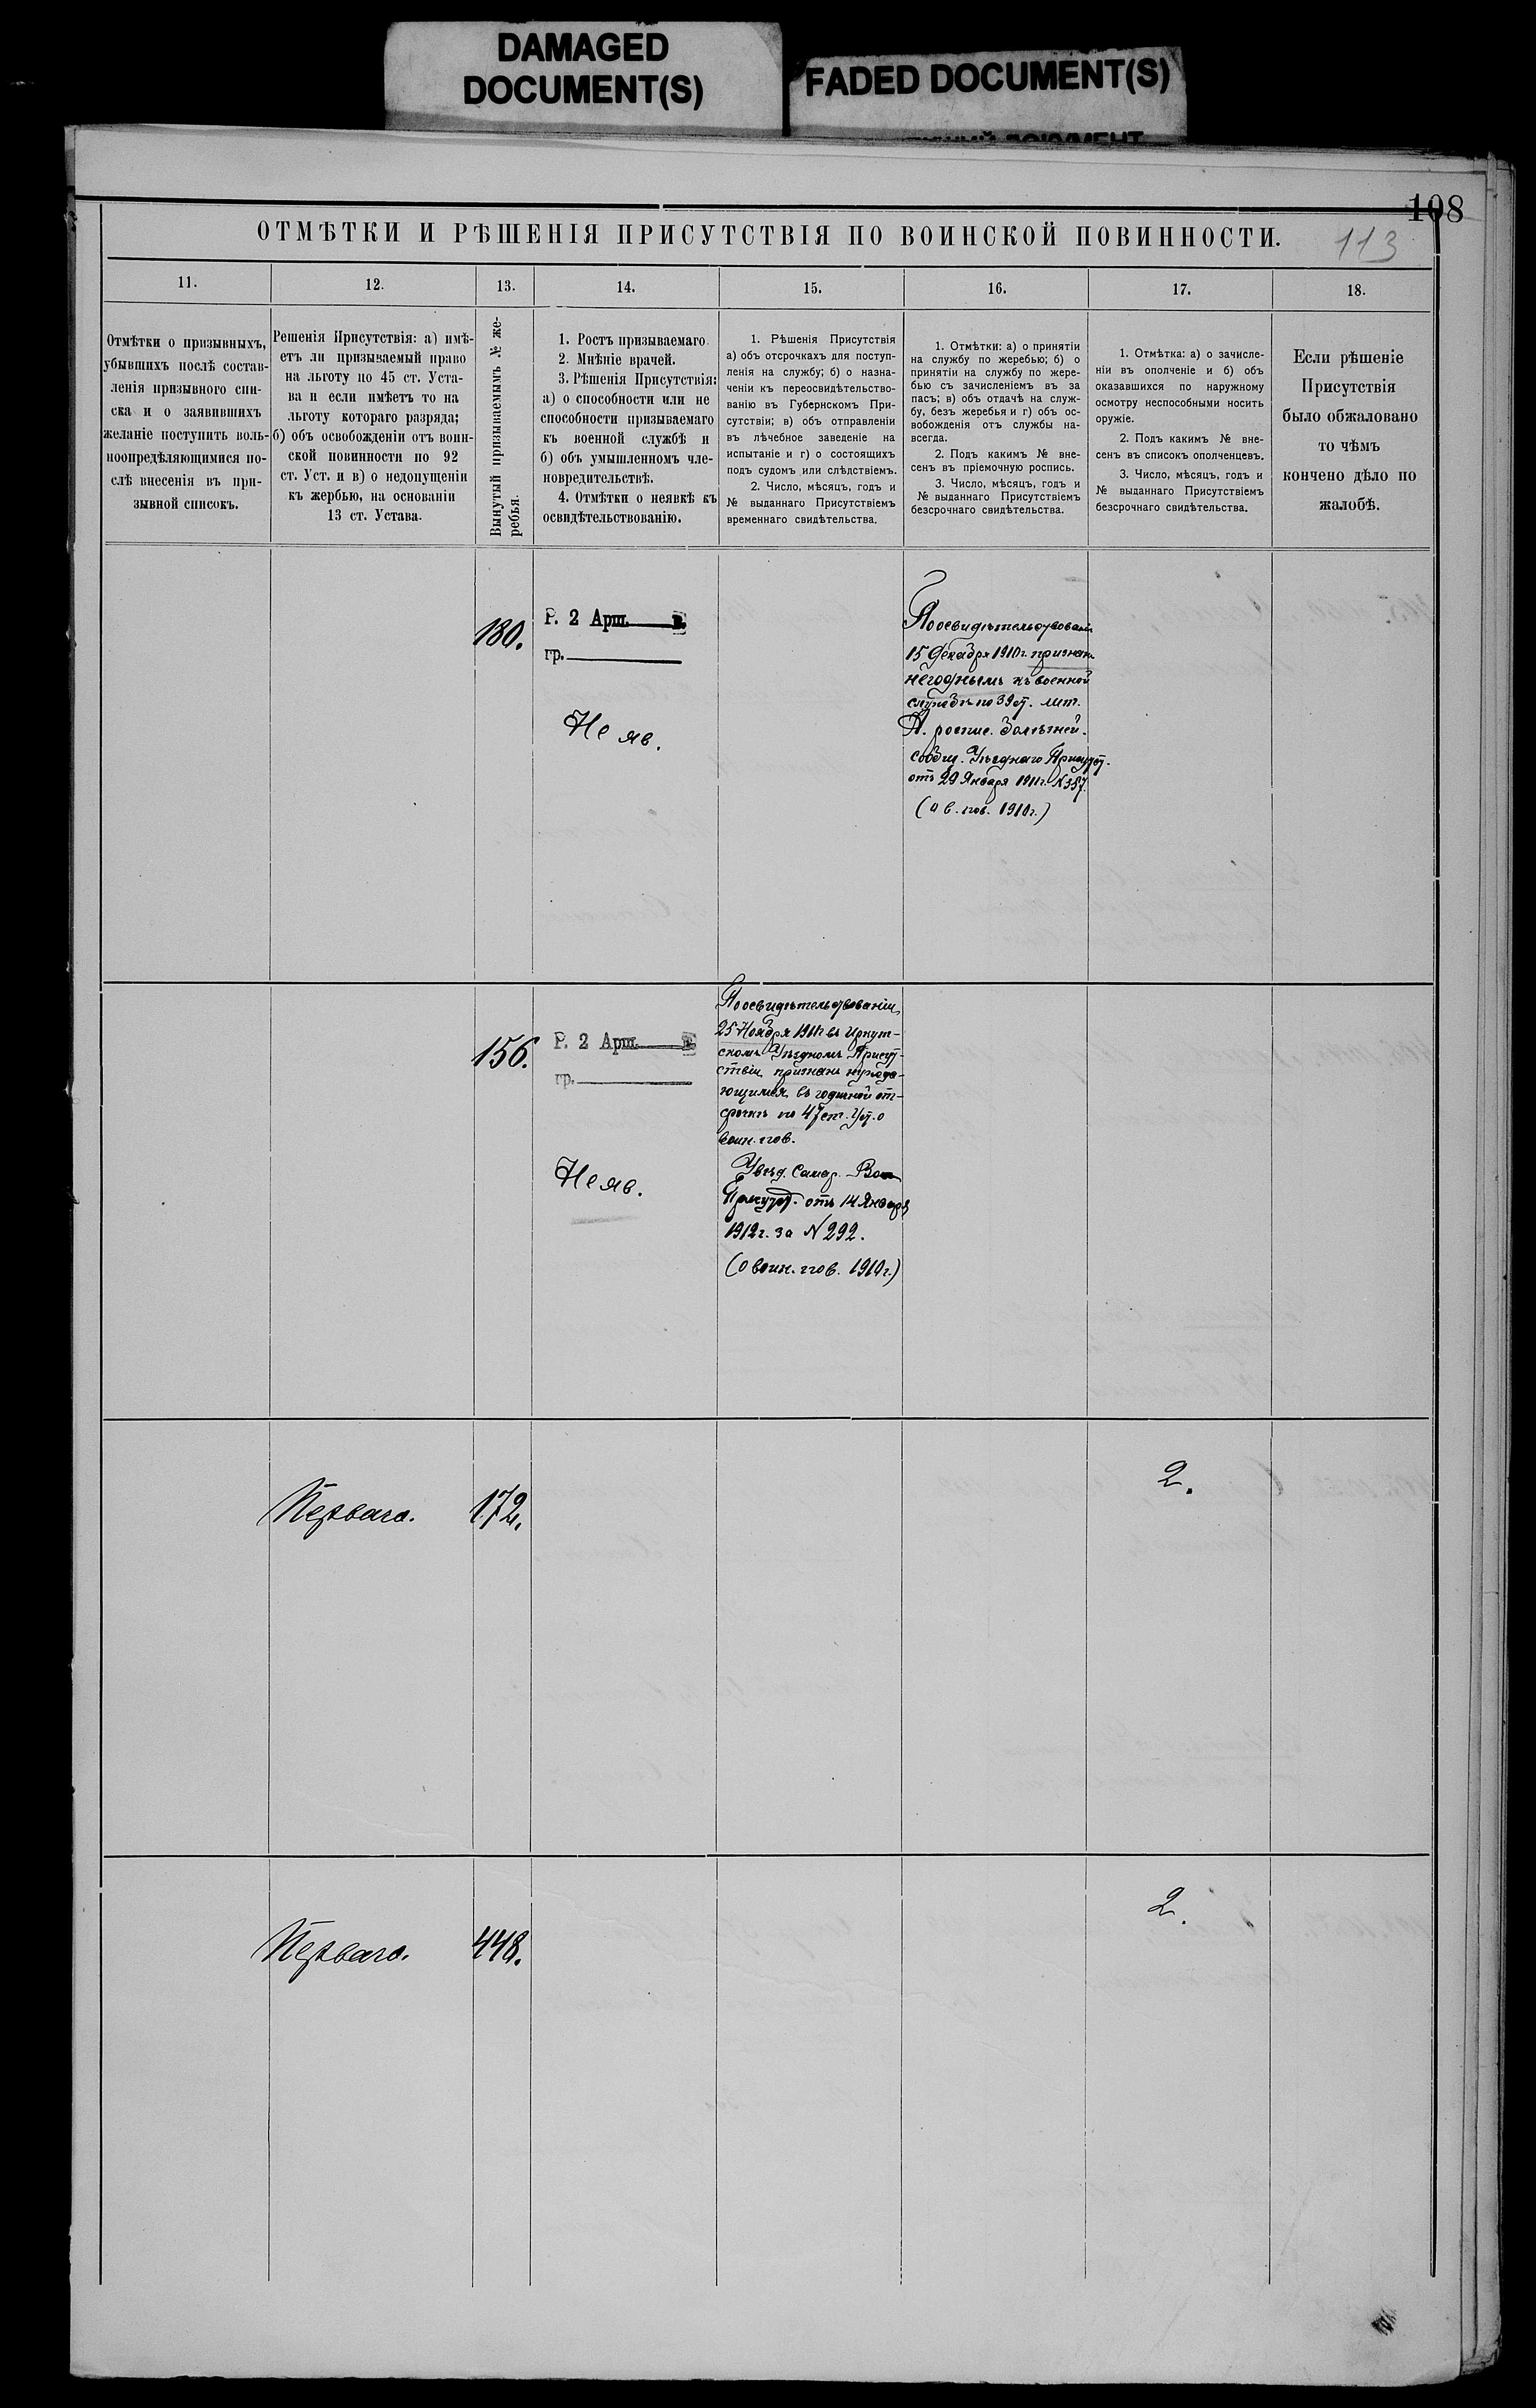 DAMAGED
DOCUMENT(S)
FADED DOCUMENT(S)
108
ОТМѢТКИ И РѢШЕНІЯ ПРИСУТСТВІЯ ПО ВОИНСКОЙ ПОВИННОСТИ.
113
11.
12.
13.
14.
15.
16.
17.
18.
Отмѣтки о призывныхъ,
убывшихъ послѣ состав-
ленія призывного спи-
ска и о заявившихъ
желаніе поступить воль-
ноопредѣляющимися по-
слѣ внесенія въ при-
зывной списокъ.
Решенія Присутствія: а) имѣ-
етъ ли призываемый право
на льготу по 45 ст. Уста-
ва и если имѣетъ то на
льготу котораго разряда;
б) объ освобожденіи отъ воин-
ской повинности по 92
ст. Уст. и в) о недопущеніи
къ жербью, на основаніи
13 ст. Устава.
Вынутый призываемымъ № же-
ребья.
1. Ростъ призываемаго.
2. Мнѣніе врачей.
3. Рѣшенія Присутствія:
а) о способности или не
способности призываемаго
къ военной службѣ и
б) объ умышленномъ чле-
новредительствѣ.
4. Отмѣтки о неявкѣ къ
освидѣтельствованію.
1. Рѣшенія Присутствія
а) объ отсрочкахъ для поступ-
ленія на службу; б) о назна-
ченіи къ переосвидѣтельство-
ванію въ Губернскомъ При-
сутствіи; в) объ отправленіи
въ лѣчебное заведеніе на
испытаніе и г) о состоящихъ
подъ судомъ или слѣдствіемъ.
2. Число, мѣсяцъ, годъ и
№ выданнаго Присутствіемъ
временнаго свидѣтельства.
1. Отмѣтки: а) о принятіи
на службу по жеребью; б) о
принятіи на службу по жере-
бью съ зачисленіемъ въ за
пасъ; в) объ отдачѣ на служ-
бу, безъ жеребья и г) объ ос-
вобожденія отъ службы на-
всегда.
2. Подъ какимъ № вне-
сенъ въ пріемочную роспись.
3. Число, мѣсяцъ, годъ и
№ выданнаго Присутствіемъ
безсрочнаго свидѣтельства.
1. Отмѣтка: а) о зачисле-
ніи въ ополченіе и б) объ
оказавшихся по наружному
осмотру неспособными носить
оружіе.
2. Подъ какимъ № вне-
сенъ въ списокъ ополченцевъ.
3. Число, мѣсяцъ, годъ и
№ выданнаго Присутствіемъ
безсрочнаго свидѣтельства.
Если рѣшеніе
Присутствія
было обжаловано
то чѣмъ
кончено дѣло по
жалобѣ.
180.
Р. 2 Арш. в.
гр.
Не яв.
По освидѣтельствован
15 Декабря 1910г. признан
негоднымъ къ военной
службѣ по 39 ст. лит.
А. роспис. болѣзней.
сообщ. Уѣзднаго Присутст.
отъ 29 Января 1911г. №357.
(о в. пов. 1910г.)
156.
Р. 2 Арш. в.
гр.
Не яв.
По освидѣтельствованіи
25 Ноября 1911г въ Иркут-
скомъ Уѣздномъ Присут-
ствіи признанъ нужда-
ющимся въ годичной от-
срочкѣ по 47 ст. Уст. о
воин. пов.
Увѣд. Самар. Воин
Присутст. отъ 14 Января
1912г. за №292.
(о воин. пов. 1910г.)
Перваго.
172.
2.
Перваго.
448.
2.